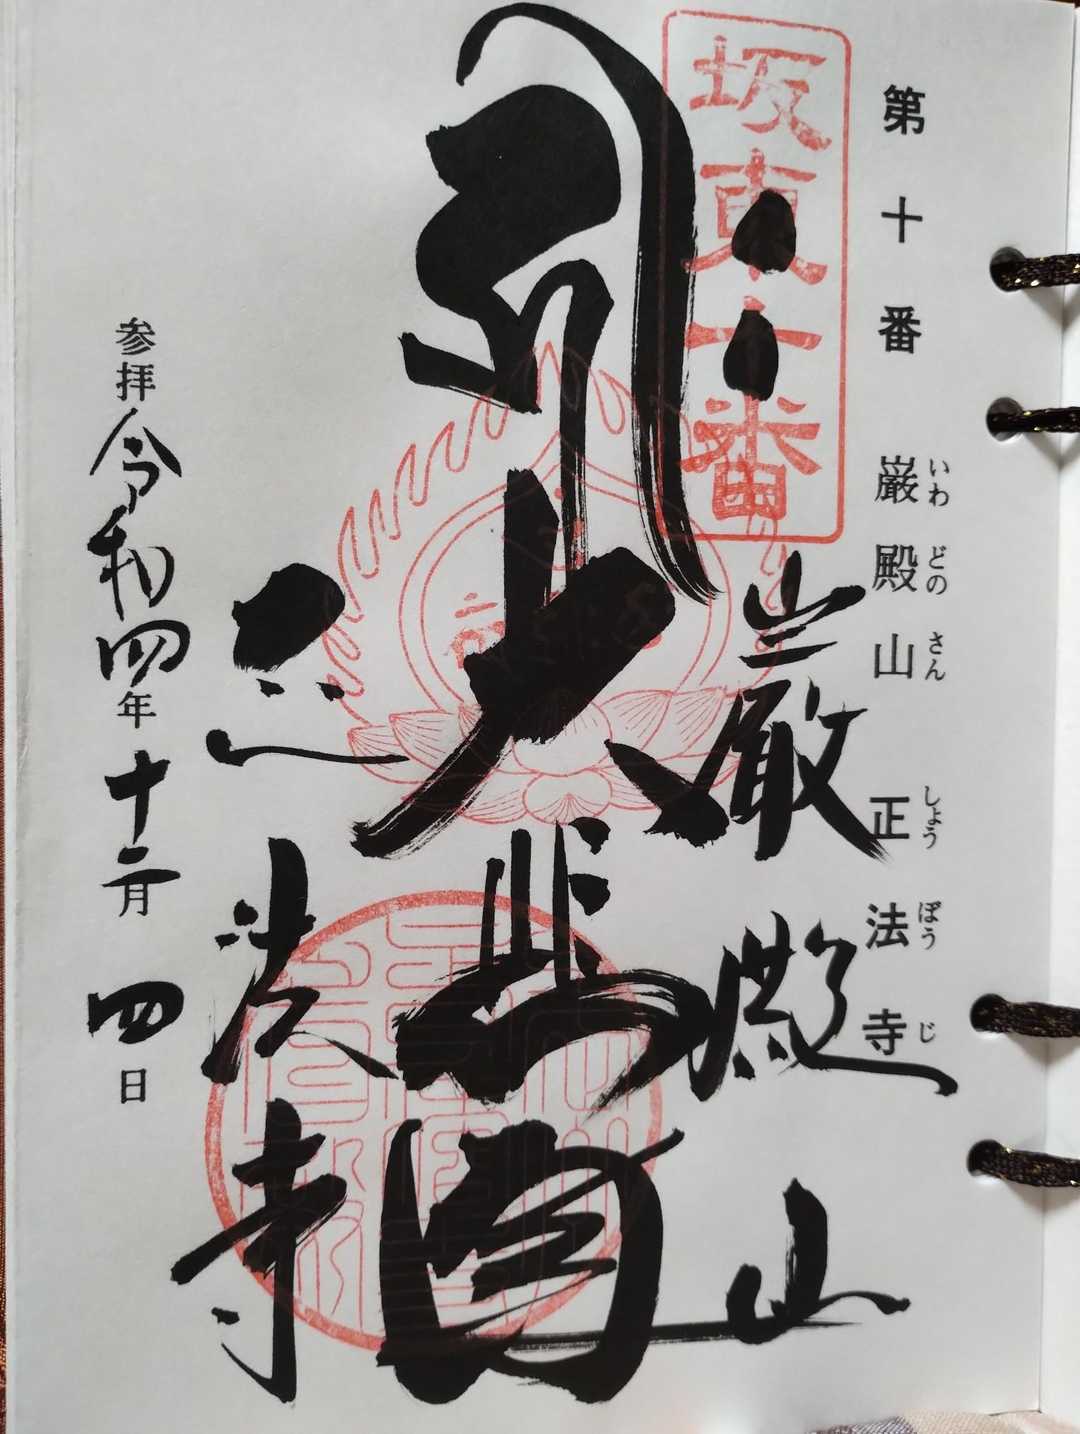 第十番 巌殿山 正法寺
いわ どの さん しょう ぼう じ
坂東十番
巌殿山
大悲閣
正法寺
参拝 令和四年十二月四日